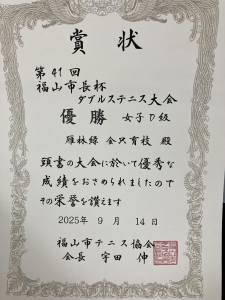 賞状
第41回
福山市長杯
ダブルステニス大会
優勝 女子D級
雁林緑 金只育枝 殿
頭書の大会に於いて優秀な
成績をおさめられましたので
その栄誉を讃えます
2025年 9月 14日
福山市テニス協会
会長 宇田 伸